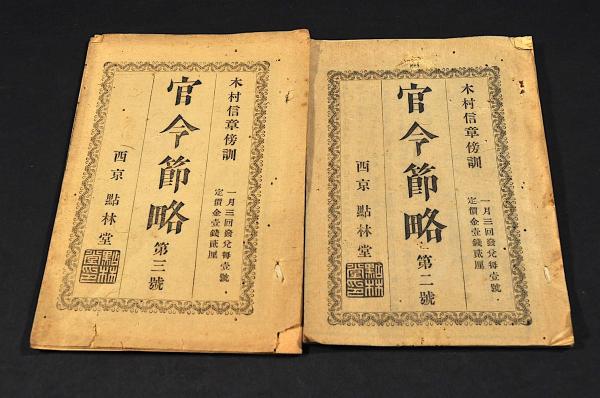 木村信章傍訓
官令節略
第二號
一月三回發兌每壹號・
定價金壹錢貳厘
西京 點林堂
木村信章傍訓
官令節略
第三號
一月三回發兌每壹號・
定價金壹錢貳厘
西京 點林堂